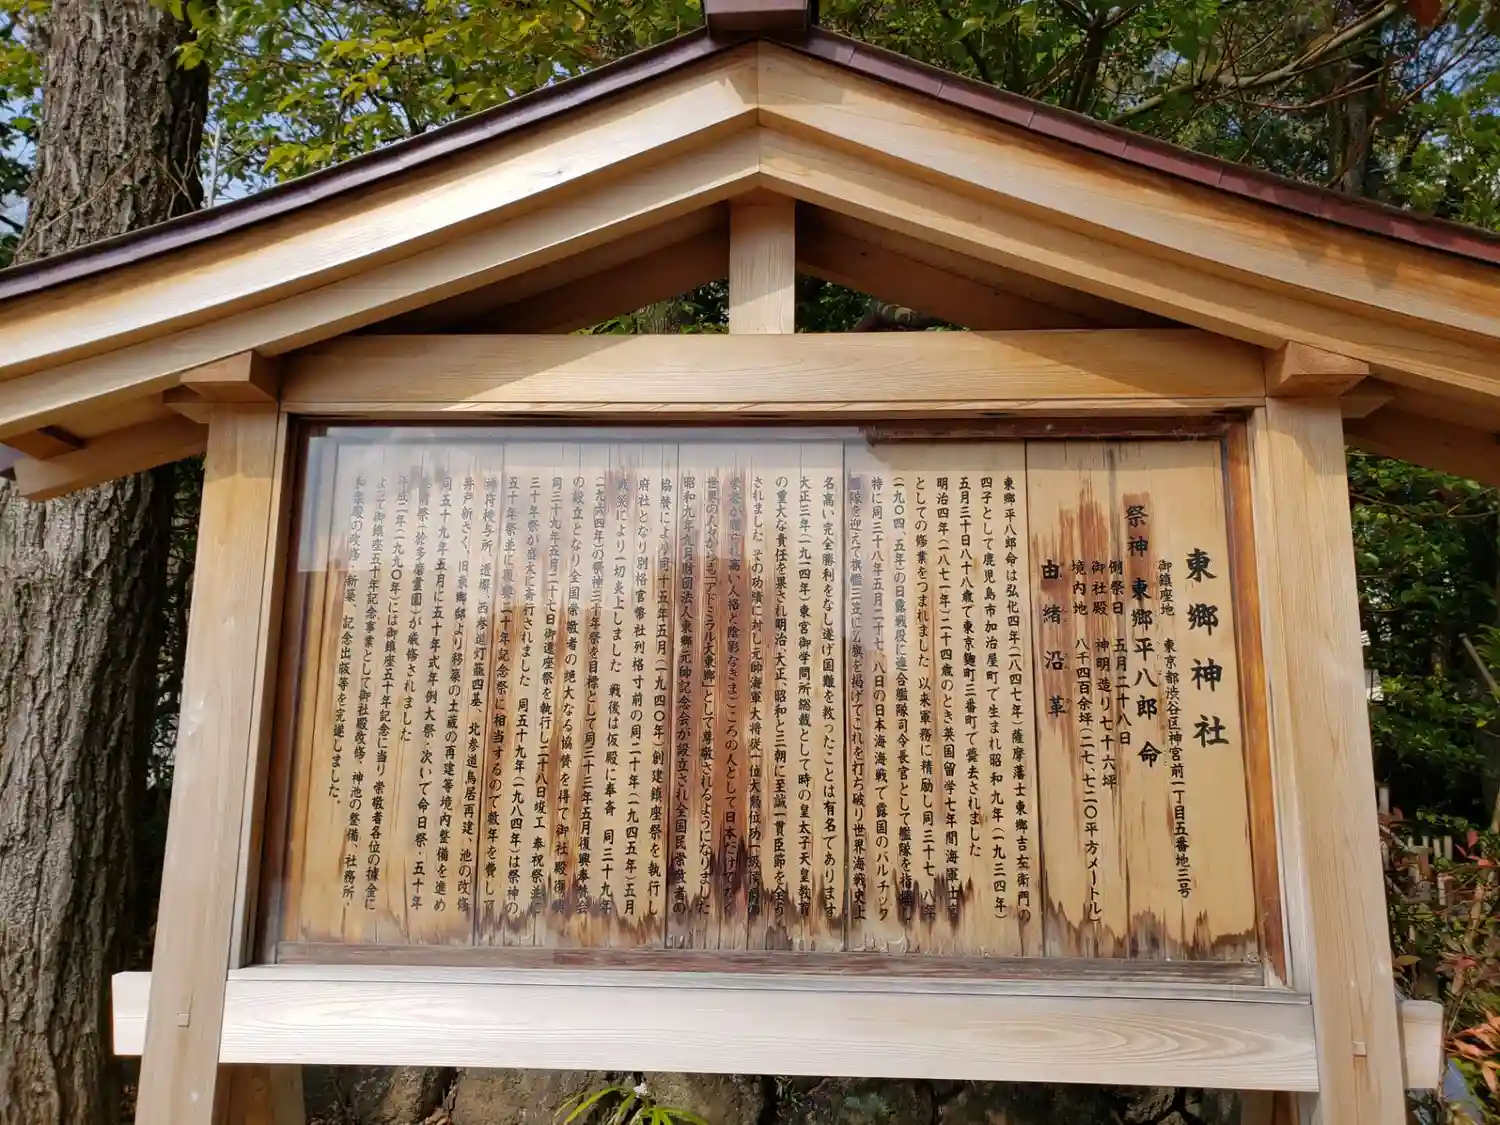 東郷神社
御鎮座地 東京都渋谷区神宮前一丁目五番地三号
祭神 東郷平八郎命
例祭日 五月二十八日
御社殿 神明造り七十六坪
境内地 八千四百余坪(二七、七二〇平方メートル)
由緒沿革
東郷平八郎命は弘化四年(一八四七年)薩摩藩士東郷吉左衛門の
四子として鹿児島市加治屋町で生まれ昭和九年(一九三四年)
五月三十日八十八歳で東京麹町三番町で薨去されました
明治四年(一八七一年)二十四歳のとき英国留学七年間海軍士官
としての修業をつまれました 以来軍務に精励し同三十七、八年
(一九〇四、五年)の日露戦役に連合艦隊司令長官として艦隊を指揮し
特に同三十八年五月二十七、八日の日本海海戦で露国のバルチック
艦隊を迎えて旗艦三笠にZ旗を掲げてこれを打ち破り世界海戦史上
名高い完全勝利をなし遂げ国難を救ったことは有名であります
大正三年(一九一四年)東宮御学問所総裁として時の皇太子天皇教育
の重大な責任を果され明治、大正、昭和と三朝に至誠一貫臣節を全う
されました その功績に対し元帥海軍大将従一位大勲位功一級侯爵の
栄誉が贈られ高い人格と陰影なきまごころの人として日本だけでなく
世界の人々からも「アドミラル大東郷」として尊敬されるようになりました
昭和九年九月財団法人東郷元帥記念会が設立され全国民崇敬者の
協賛により同十五年五月(一九四〇年)創建鎮座祭を執行し
府社となり別格官幣社列格寸前の同二十年(一九四五年)五月
戦災により一切炎上しました 戦後は仮殿に奉斎 同三十九年
(一九六四年)の祭神三十年祭を目標として同三十三年五月復興奉賛会
の設立となり全国崇敬者の絶大なる協賛を得て御社殿復興
同三十九年五月二十七日御遷座祭を執行し二十八日竣工奉祝祭並に
三十年祭が盛大に斎行されました 同五十九年(一九八四年)は祭神の
五十年祭並に復興二十年記念祭に相当するので数年を費して
神符授与所、透塀、西参道灯籠四基、北参道鳥居再建、池の改修
井戸新さく、旧東郷邸より移築の土蔵の再建等境内整備を進め
同五十九年五月に五十年式年例大祭・次いで命日祭・五十年
墓前祭(於多磨霊園)が厳修されました
平成二年(一九九〇年)には御鎮座五十年記念に当り崇敬者各位の献金に
より御鎮座五十年記念事業として御社殿改修、神池の整備、社務所・
和楽殿の改修・新築、記念出版等を完遂しました。